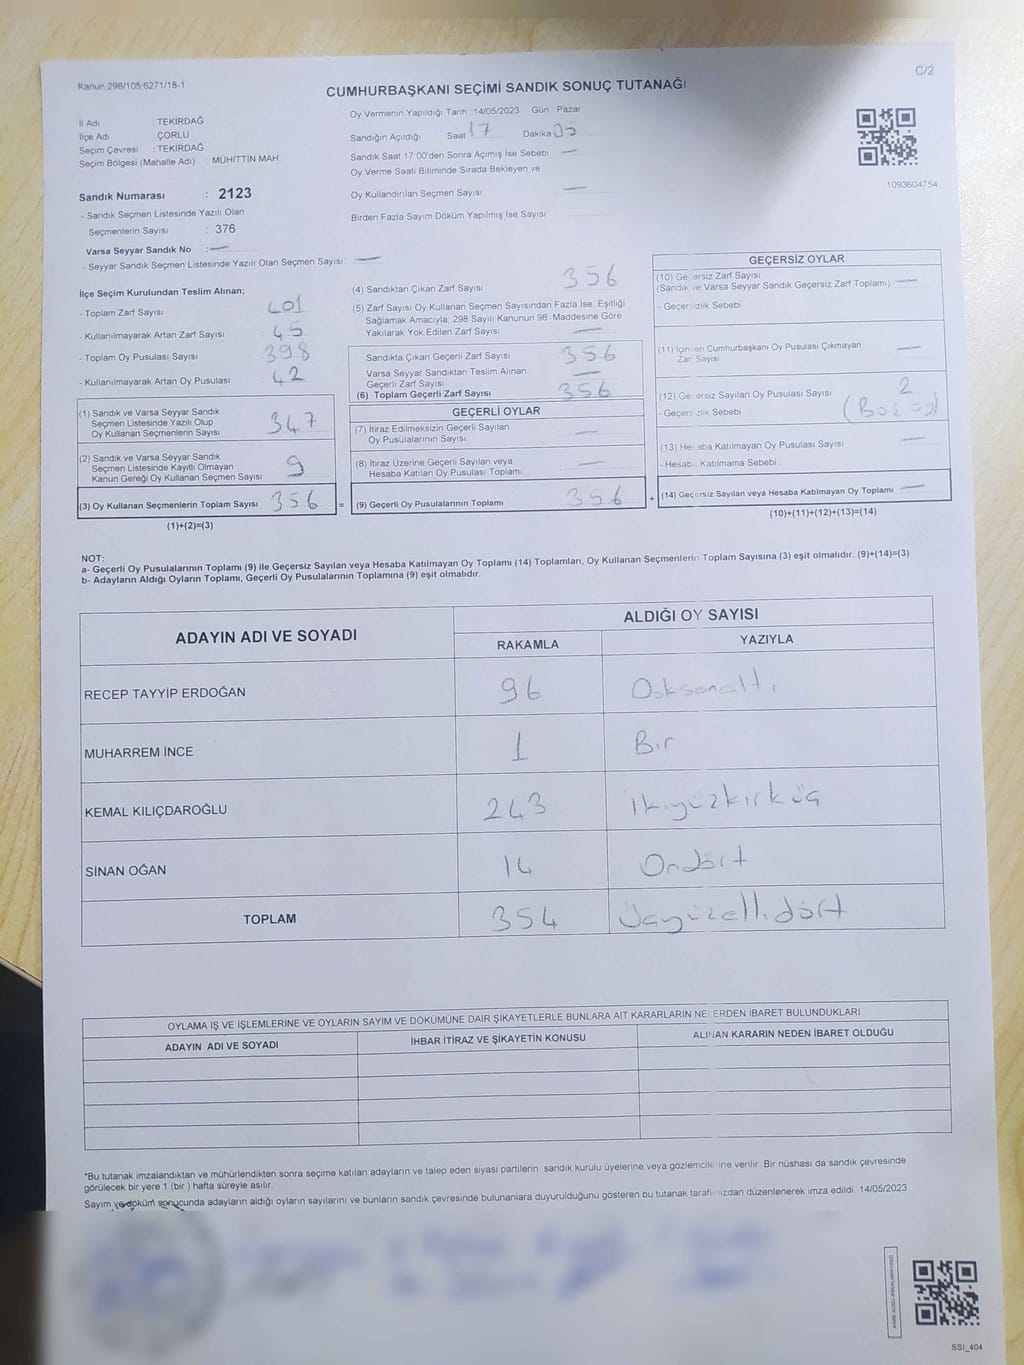 Kanun 298/105 6271/18-1
C/2
CUMHURBAŞKANI SEÇİMİ SANDIK SONUÇ TUTANAĞI
İl Adı TEKİRDAĞ
İlçe Adı ÇORLU
Seçim Çevresi : TEKİRDAĞ
Seçim Bölgesi (Mahalle Adı) : MUHİTTİN MAH.
Sandık Numarası : 2123
- Sandık Seçmen Listesinde Yazılı Olan
Seçmenlerin Sayısı : 376
Varsa Seyyar Sandık No : —
- Seyyar Sandık Seçmen Listesinde Yazılı Olan Seçmen Sayısı: —
Oy Vermenin Yapıldığı Tarih :14/05/2023 Gün : Pazar
Sandığın Açıldığı Saat 17 Dakika 05
Sandık Saat 17:00'den Sonra Açımış İse Sebebi —
Oy Verme Saati Bitiminde Sırada Bekleyen ve
Oy Kullandırılan Seçmen Sayısı —
Birden Fazla Sayım Döküm Yapılmış İse Sayısı
1093604754
İlçe Seçim Kurulundan Teslim Alınan;
- Toplam Zarf Sayısı 401
- Kullanılmayarak Artan Zarf Sayısı 45
- Toplam Oy Pusulası Sayısı 398
- Kullanılmayarak Artan Oy Pusulası 42
(1) Sandık ve Varsa Seyyar Sandık
Seçmen Listesinde Yazılı Olup
Oy Kullanan Seçmenlerin Sayısı 347
(2) Sandık ve Varsa Seyyar Sandık
Seçmen Listesinde Kayıtlı Olmayan
Kanun Gereği Oy Kullanan Seçmen Sayısı 9
(3) Oy Kullanan Seçmenlerin Toplam Sayısı 356 =
(1)+(2)=(3)
(4) Sandıktan Çıkan Zarf Sayısı 356
(5) Zarf Sayısı Oy Kullanan Seçmen Sayısından Fazla İse, Eşitliği
Sağlamak Amacıyla; 298 Sayılı Kanunun 98. Maddesine Göre
Yakılarak Yok Edilen Zarf Sayısı —
Sandıkta Çıkan Geçerli Zarf Sayısı 356
Varsa Seyyar Sandıktan Teslim Alınan
Geçerli Zarf Sayısı —
(6) Toplam Geçerli Zarf Sayısı 356
GEÇERLİ OYLAR
(7) İtiraz Edilmeksizin Geçerli Sayılan
Oy Pusulalarının Sayısı —
(8) İtiraz Üzerine Geçerli Sayılan veya
Hesaba Katılan Oy Pusulası Toplamı —
(9) Geçerli Oy Pusulalarının Toplamı 356 +
GEÇERSİZ OYLAR
(10) Geçersiz Zarf Sayısı
(Sandık ve Varsa Seyyar Sandık Geçersiz Zarf Toplamı) —
- Geçersizlik Sebebi
(11) İçinden Cumhurbaşkanı Oy Pusulası Çıkmayan
Zarf Sayısı —
(12) Geçersiz Sayılan Oy Pusulası Sayısı 2
- Geçersizlik Sebebi (Boş oy)
(13) Hesaba Katılmayan Oy Pusulası Sayısı —
- Hesaba Katılmama Sebebi
(14) Geçersiz Sayılan veya Hesaba Katılmayan Oy Toplamı —
(10)+(11)+(12)+(13)=(14)
NOT:
a- Geçerli Oy Pusulalarının Toplamı (9) ile Geçersiz Sayılan veya Hesaba Katılmayan Oy Toplamı (14) Toplamları, Oy Kullanan Seçmenlerin Toplam Sayısına (3) eşit olmalıdır. (9)+(14)=(3)
b- Adayların Aldığı Oyların Toplamı, Geçerli Oy Pusulalarının Toplamına (9) eşit olmalıdır.
ADAYIN ADI VE SOYADI
ALDIĞI OY SAYISI
RAKAMLA YAZIYLA
RECEP TAYYİP ERDOĞAN 96 Doksanaltı
MUHARREM İNCE 1 Bir
KEMAL KILIÇDAROĞLU 243 İkiyüzkırküç
SİNAN OĞAN 14 Ondört
TOPLAM 354 Üçyüzellidört
OYLAMA İŞ VE İŞLEMLERİNE VE OYLARIN SAYIM VE DÖKÜMÜNE DAİR ŞİKAYETLERLE BUNLARA AİT KARARLARIN NELERDEN İBARET BULUNDUKLARI
ADAYIN ADI VE SOYADI İHBAR İTİRAZ VE ŞİKAYETİN KONUSU ALINAN KARARIN NEDEN İBARET OLDUĞU
*Bu tutanak imzalandıktan ve mühürlendikten sonra seçime katılan adayların ve talep eden siyasi partilerin sandık kurulu üyelerine veya gözlemcilerine verilir. Bir nüshası da sandık çevresinde
görülecek bir yere 1 (bir) hafta süreyle asılır.
Sayım ve döküm sonucunda adayların aldığı oyların sayılarını ve bunların sandık çevresinde bulunanlara duyurulduğunu gösteren bu tutanak tarafımızdan düzenlenerek imza edildi. 14/05/2023
SSI_404